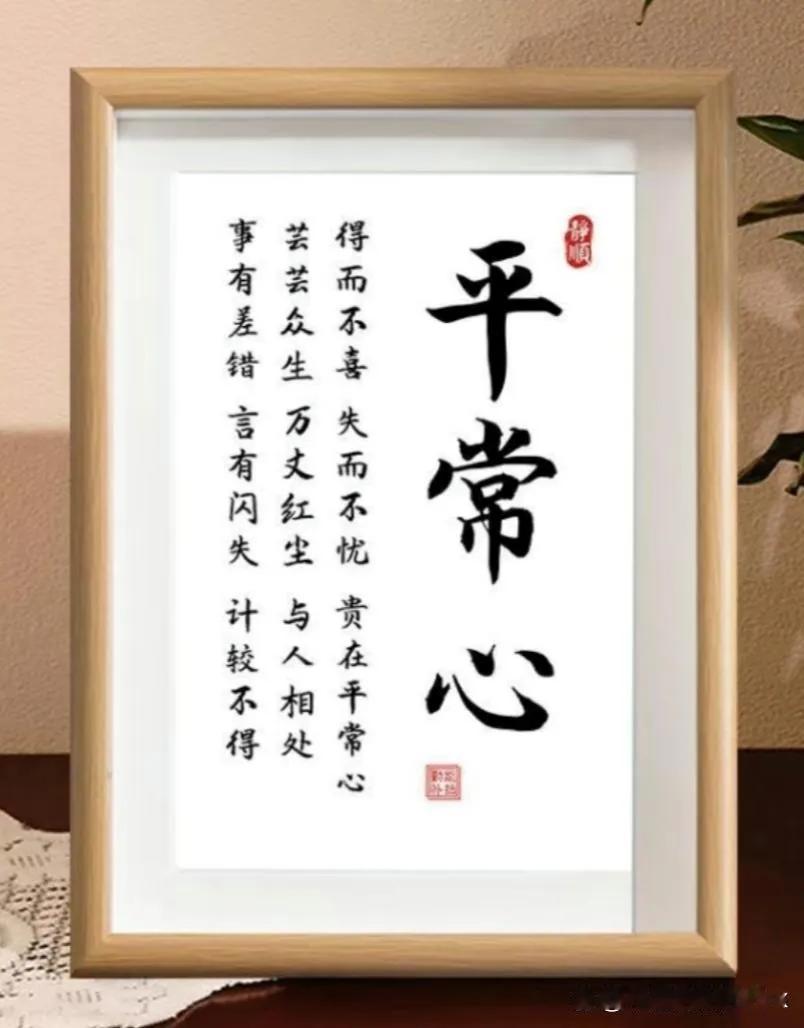 静順
平常心
得而不喜 失而不忧 贵在平常心
芸芸众生 万丈红尘 与人相处
事有差错 言有闪失 计较不得